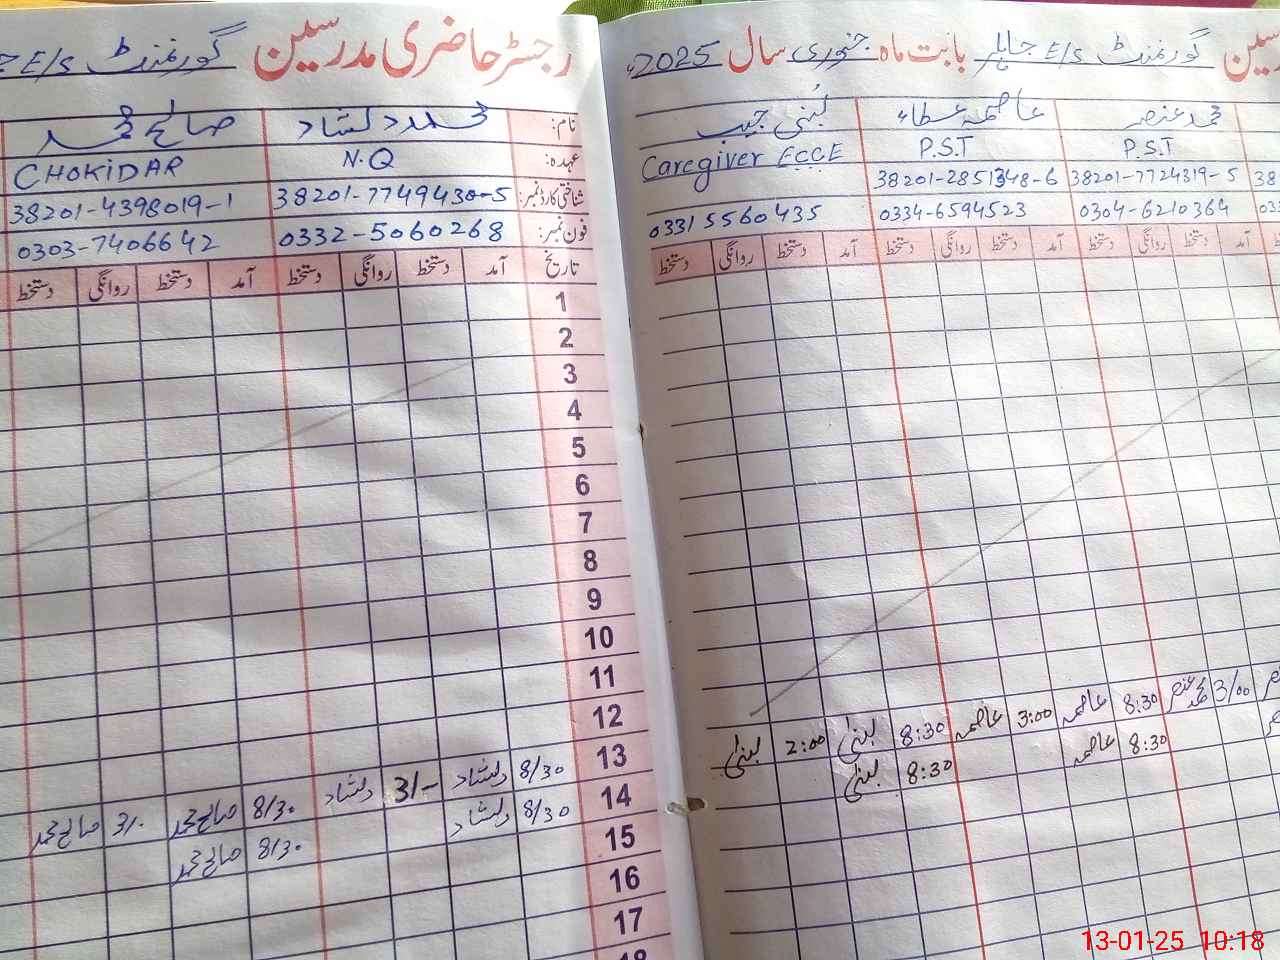 رجسٹر حاضری مدرسین گورنمنٹ E/S
نام: محمد دلشاد صالح محمد
عہدہ: N.Q CHOKIDAR
شناختی کارڈ نمبر: 38201-7749430-5 38201-4398019-1
فون نمبر: 0332-5060268 0303-7406642
تاریخ آمد دستخط روانگی دستخط آمد دستخط روانگی دستخط
1
2
3
4
5
6
7
8
9
10
11
12
13 8/30 دلشاد 3/- دلشاد 8/30 صالح محمد 3/- صالح محمد
14 8/30 دلشاد 8/30 صالح محمد
15
16
17
18
گورنمنٹ E/S بابت ماہ جنوری سال 2025ء
محمد عنصر عاصمہ عطاء لبنیٰ
P.S.T P.S.T Caregiver ECCE
38201-7724319-5 38201-2851348-6
0304-6210364 0334-6594523 0331 5560435
آمد دستخط روانگی دستخط آمد دستخط روانگی دستخط آمد دستخط روانگی دستخط
3/00 محمد عنصر 8:30 عاصمہ 3:00 عاصمہ 8:30 لبنیٰ 2:00 لبنیٰ
8:30 عاصمہ 8:30 لبنیٰ
13-01-25 10:18